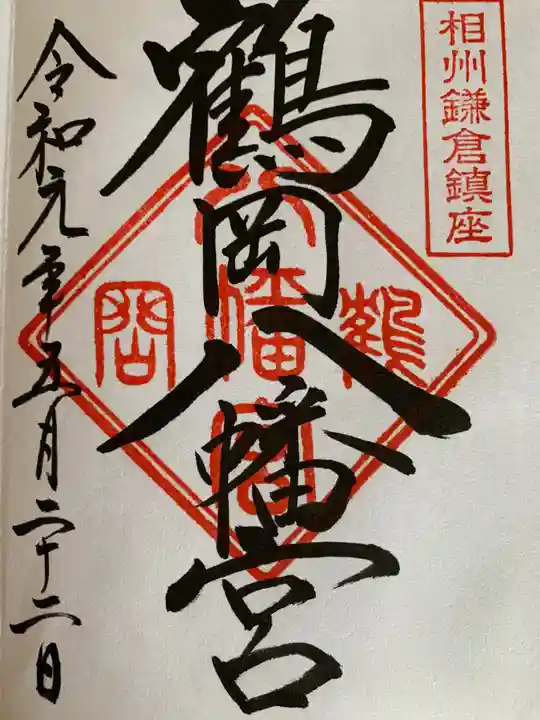 相州鎌倉鎮座
鶴岡八幡宮
鶴
八幡宮
岡
令和元年五月二十二日